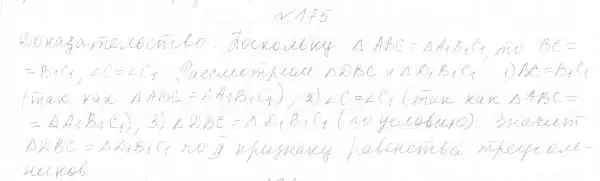 №175
Доказательство. Поскольку △ABC=△A₁B₁C₁, то BC=
=B₁C₁, ∠C=∠C₁. Рассмотрим △DBC и △D₁B₁C₁. 1) BC=B₁C₁
(так как △ABC=△A₁B₁C₁), 2) ∠C=∠C₁ (так как △ABC=
=△A₁B₁C₁), 3) △DBC=△D₁B₁C₁ (по условию). Значит
△DBC=△D₁B₁C₁ по II признаку равенства треуголь-
ников.